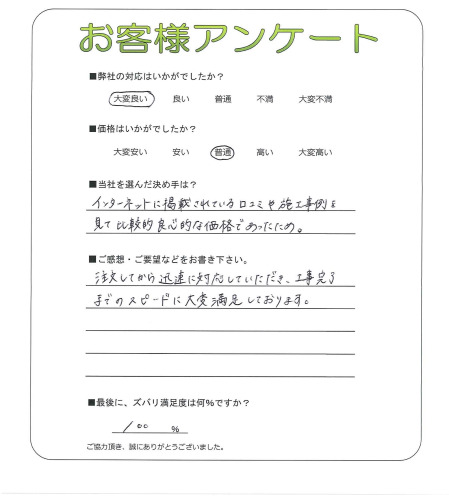 お客様アンケート
■弊社の対応はいかがでしたか？
大変良い 良い 普通 不満 大変不満
■価格はいかがでしたか？
大変安い 安い 普通 高い 大変高い
■当社を選んだ決め手は？
インターネットに掲載されている口コミや施工事例を
見て比較的良心的な価格であったため。
■ご感想・ご要望などをお書き下さい。
注文してから迅速に対応していただき、工事完了
までのスピードに大変満足しております。
■最後に、ズバリ満足度は何％ですか？
100 ％
ご協力頂き、誠にありがとうございました。